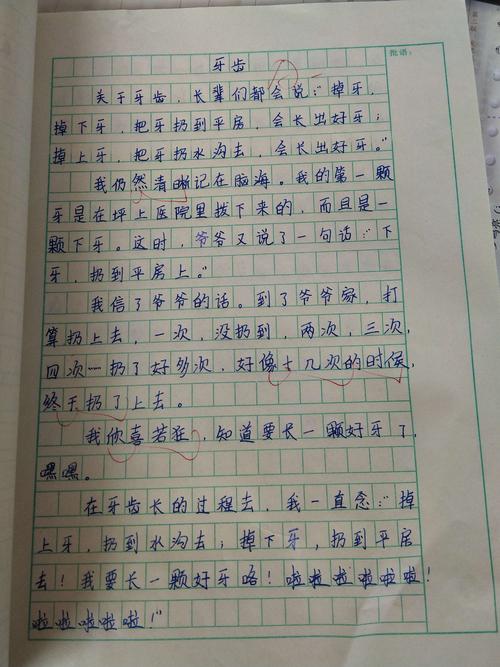 批语：
牙齿
关于牙齿，长辈们都会说：“掉牙，
掉下牙，把牙扔到平房，会长出好牙；
掉上牙，把牙扔水沟去，会长出好牙。”
我仍然清晰记在脑海。我的第一颗
牙是在坪上医院里拨下来的，而且是一
颗下牙。这时，爷爷又说了一句话：“下
牙，扔到平房上。”
我信了爷爷的话。到了爷爷家，打
算扔上去，一次，没扔到，两次，三次，
四次……扔了好多次，好像十几次的时候，
终于扔了上去。
我欣喜若狂，知道要长一颗好牙了，
嘿嘿。
在牙齿长的过程去，我一直念：“掉
上牙，扔到水沟去；掉下牙，扔到平房
去！我要长一颗好牙咯！啦啦啦啦啦啦！
啦啦啦啦啦！”